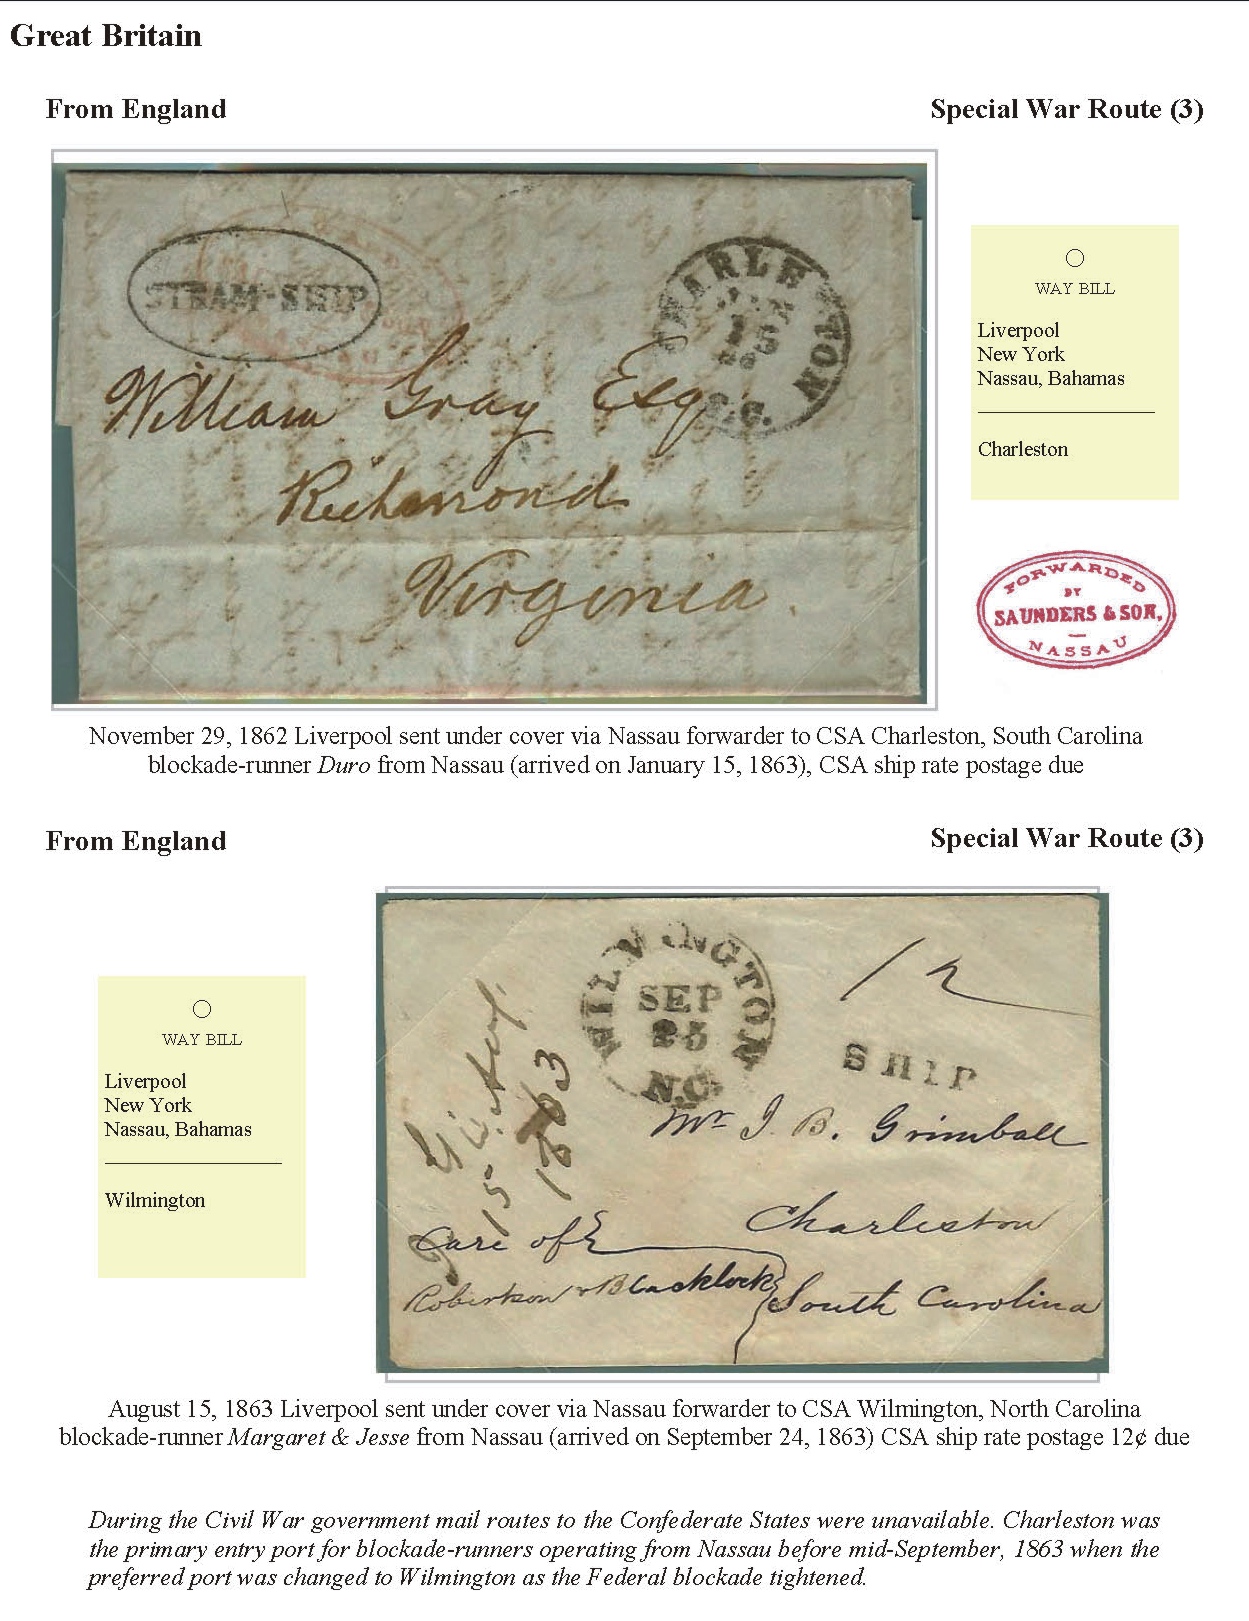 Great Britain
From England
Special War Route (3)
STEAM-SHIP
CHARLESTON
S.C.
William Gray Esq
Richmond
Virginia.
WAY BILL
Liverpool
New York
Nassau, Bahamas
Charleston
FORWARDED
BY
SAUNDERS & SON,
NASSAU
November 29, 1862 Liverpool sent under cover via Nassau forwarder to CSA Charleston, South Carolina
blockade-runner Duro from Nassau (arrived on January 15, 1863), CSA ship rate postage due
From England
Special War Route (3)
WAY BILL
Liverpool
New York
Nassau, Bahamas
Wilmington
WILMINGTON
SEP
25
N.C.
12
SHIP
15
1863
Mr J. B. Grimball
Charleston
Care of
Robertson & Blacklock
South Carolina
August 15, 1863 Liverpool sent under cover via Nassau forwarder to CSA Wilmington, North Carolina
blockade-runner Margaret & Jesse from Nassau (arrived on September 24, 1863) CSA ship rate postage 12¢ due
During the Civil War government mail routes to the Confederate States were unavailable. Charleston was
the primary entry port for blockade-runners operating from Nassau before mid-September, 1863 when the
preferred port was changed to Wilmington as the Federal blockade tightened.